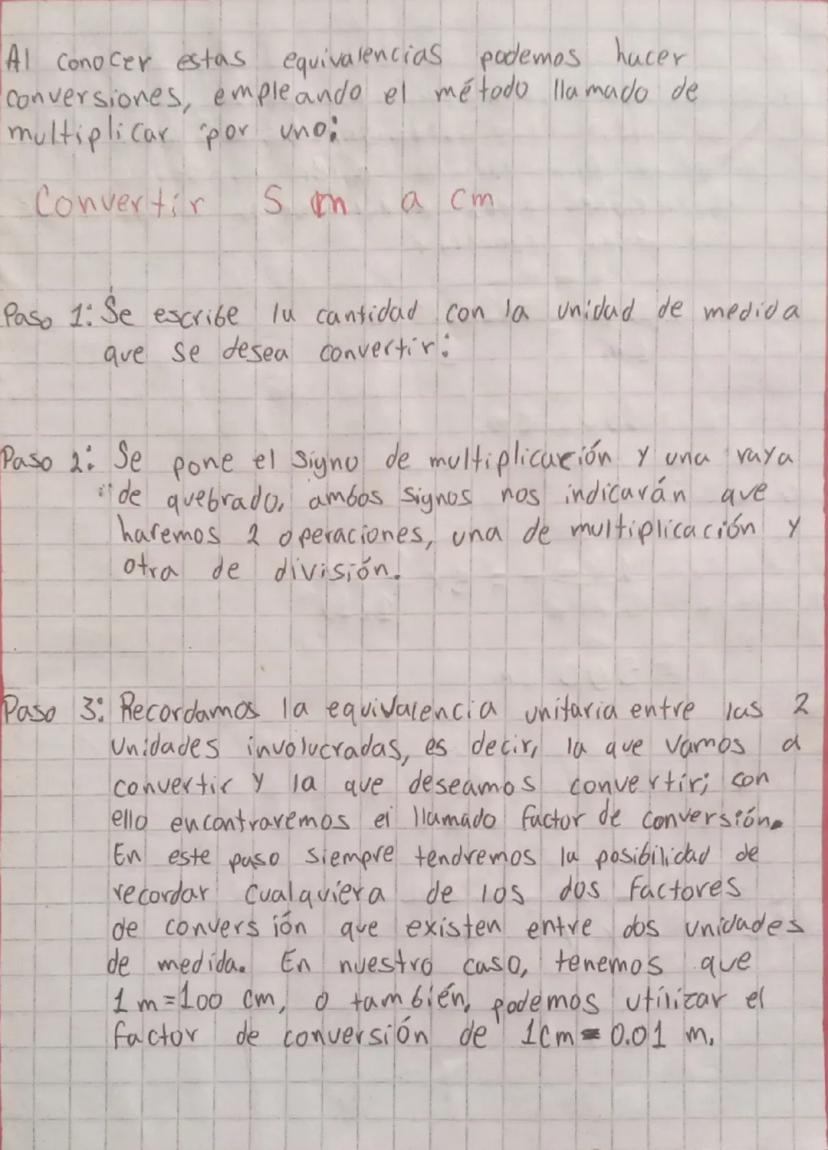 Al conocer estas equivalencias podemos hacer
conversiones, empleando el método llamado de
multiplicar por uno:
Convertir 5 m a cm
Paso 1: Se escribe la cantidad con la unidad de medida
que se desea convertir:
Paso 2: Se pone el signo de multiplicación y una raya
de quebrado, ambos signos nos indicarán que
haremos 2 operaciones, una de multiplicación y
otra de división.
Paso 3: Recordamos la equivalencia unitaria entre las 2
unidades involucradas, es decir, la que vamos a
convertir y la que deseamos convertir; con
ello encontraremos el llamado factor de conversión.
En este paso siempre tendremos la posibilidad de
recordar cualquiera de los dos factores
de conversión que existen entre dos unidades
de medida. En nuestro caso, tenemos que
1 m = 100 cm, o también, podemos utilizar el
factor de conversión de 1cm = 0.01 m.